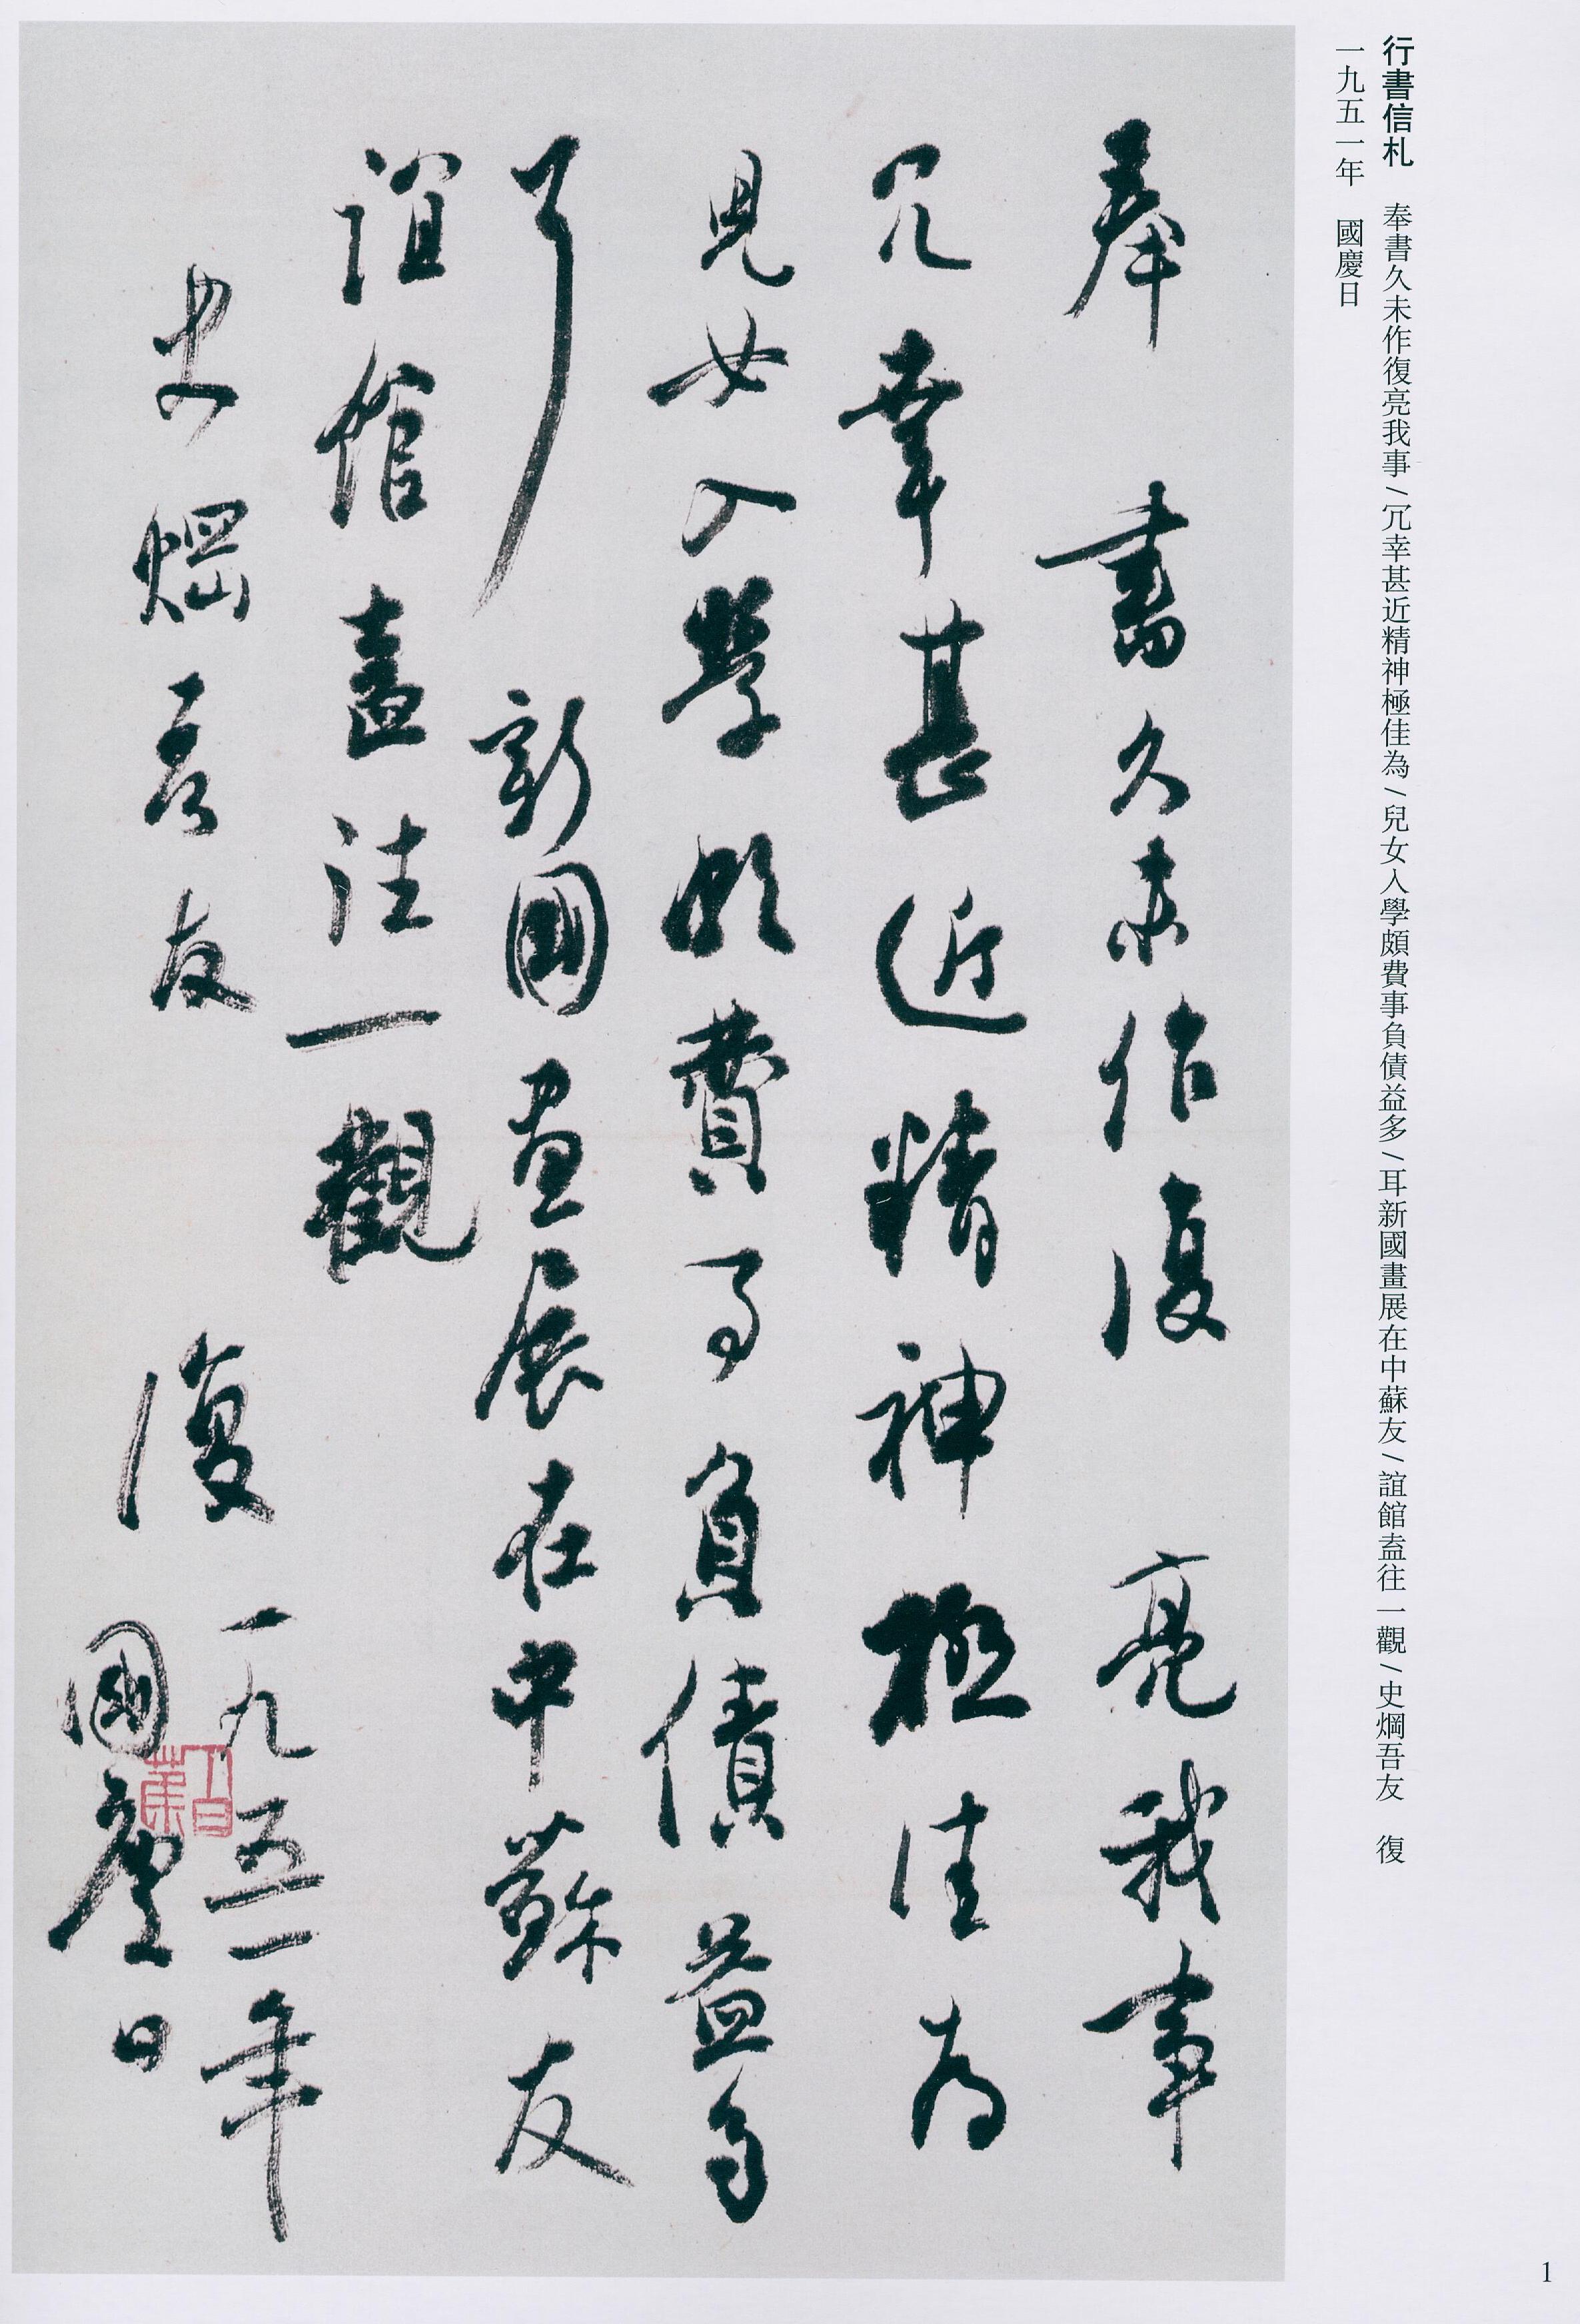 行書信札　奉書久未作復亮我事/冗幸甚近精神極佳為/兒女入學頗費事負債益多/耳新國畫展在中蘇友/誼館盍往一觀/史焹吾友　復
一九五一年　國慶日
奉書久未作復亮我事
冗幸甚近精神極佳為
兒女入學頗費事負債益多
耳新國畫展在中蘇友
誼館盍往一觀
史焹吾友　復一九五一年
國慶日
1